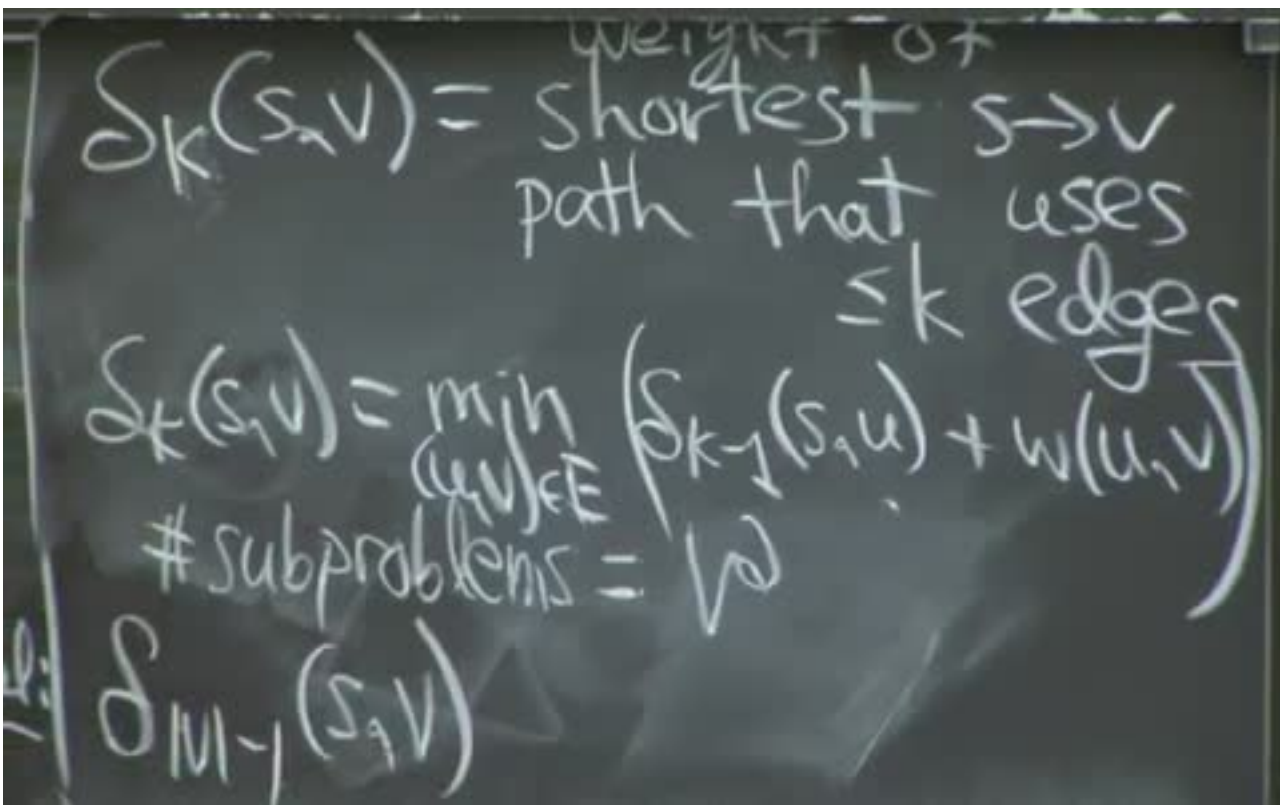 weight of
δₖ(s,v) = shortest s→v
path that uses
≤k edges
δₖ(s,v) = min (δₖ₋₁(s,u) + w(u,v))
(u,v)∈E
#subproblems = V²
δ|V|-1 (s,v)